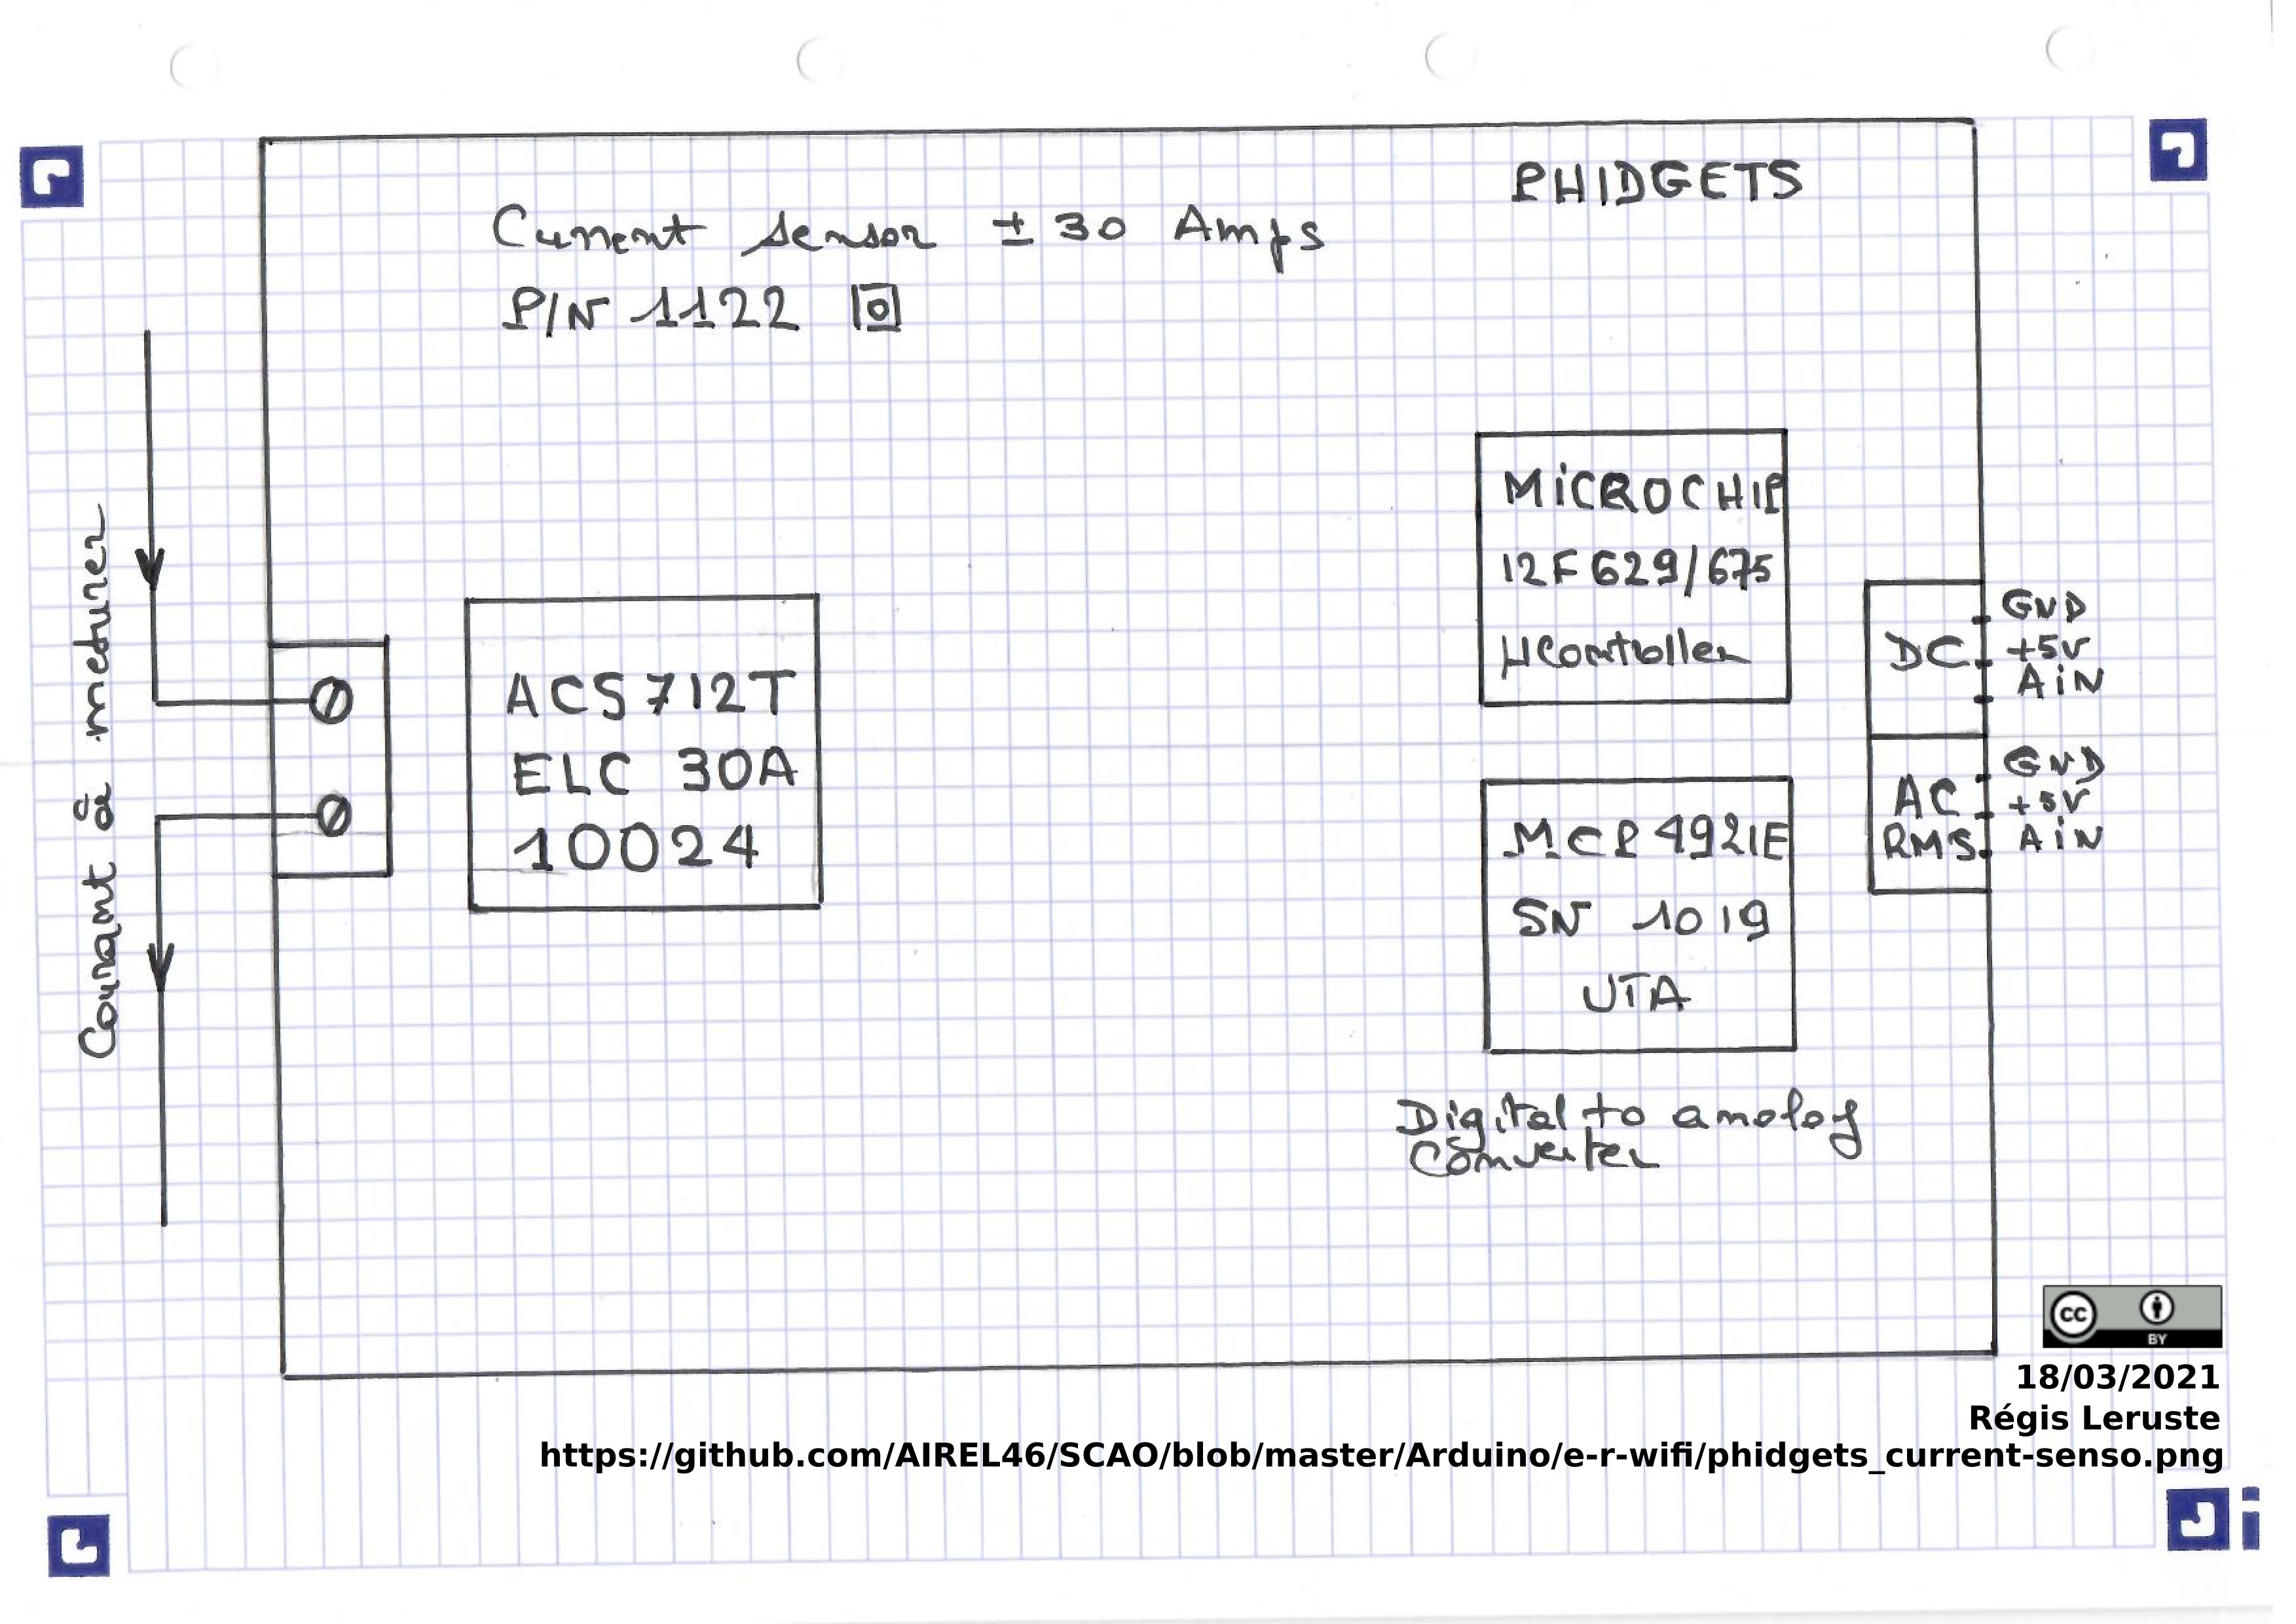 PHIDGETS
Current sensor ± 30 Amps
P/N 1122 0
Courant à mesurer
ACS712T
ELC 30A
10024
MiCROCHIP
12F629/675
µController
MCP4921E
SN 1019
UTA
Digital to analog
Converter
DC
GND
+5V
AiN
AC
RMS
GND
+5V
AiN
CC BY
18/03/2021
Régis Leruste
https://github.com/AIREL46/SCAO/blob/master/Arduino/e-r-wifi/phidgets_current-senso.png